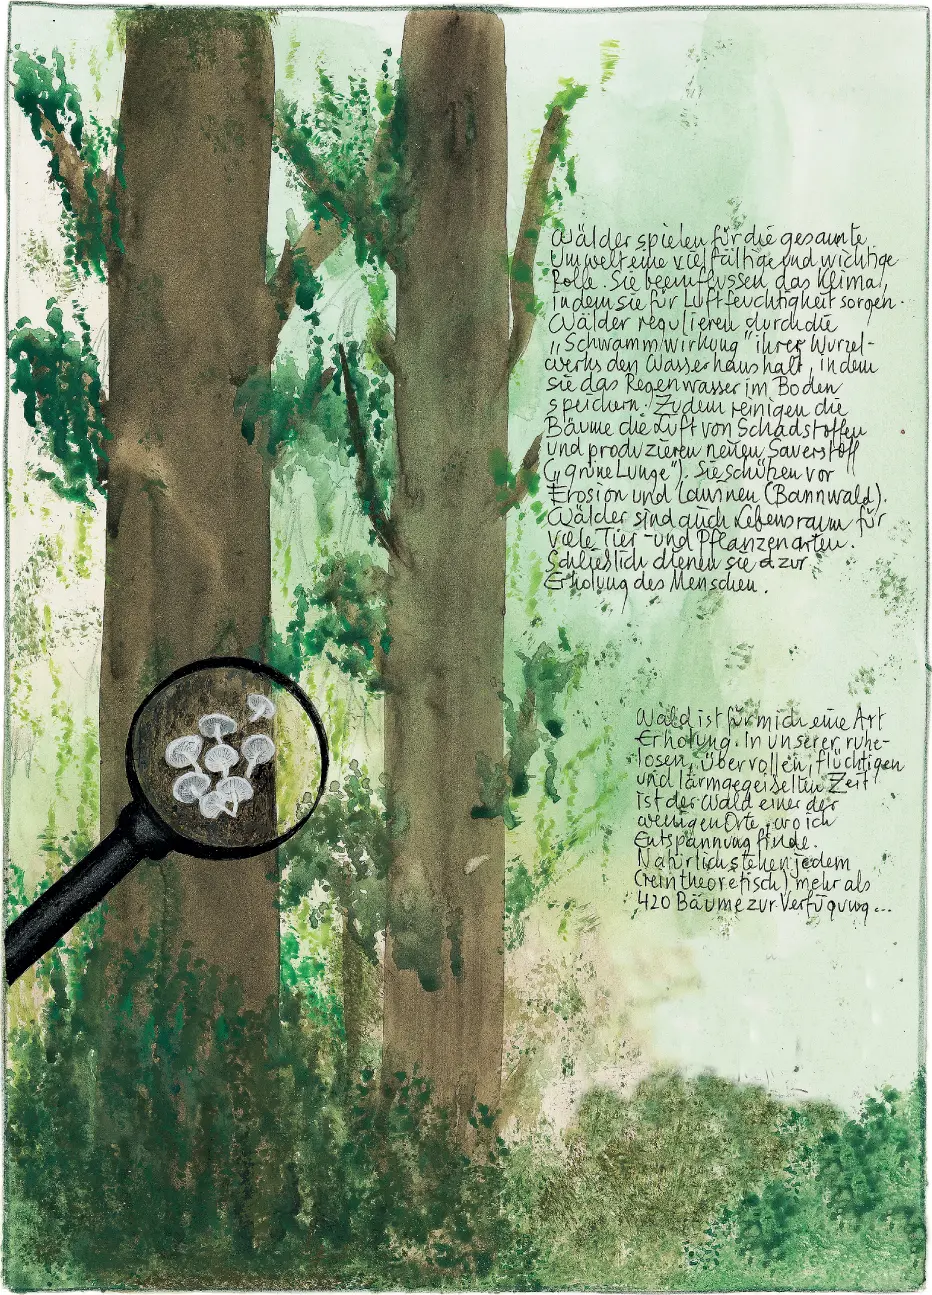 Wälder spielen für die gesamte
Umwelt eine vielfältige und wichtige
Rolle. Sie beeinflussen das Klima,
indem sie für Luftfeuchtigkeit sorgen.
Wälder regulieren durch die
„Schwammwirkung" ihrer Wurzel-
werks den Wasserhaushalt, indem
sie das Regenwasser im Boden
speichern. Zudem reinigen die
Bäume die Luft von Schadstoffen
und produzieren neuen Sauerstoff
(„grüne Lunge"). Sie schützen vor
Erosion und Lawinen (Bannwald).
Wälder sind auch Lebensraum für
viele Tier- und Pflanzenarten.
Schließlich dienen sie zur
Erholung des Menschen.
Wald ist für mich eine Art
Erholung. In unserer ruhe-
losen, übervollen, flüchtigen
und lärmgegeißelten Zeit
ist der Wald einer der
wenigen Orte, wo ich
Entspannung finde.
Natürlich stehen jedem
(rein theoretisch) mehr als
420 Bäume zur Verfügung...